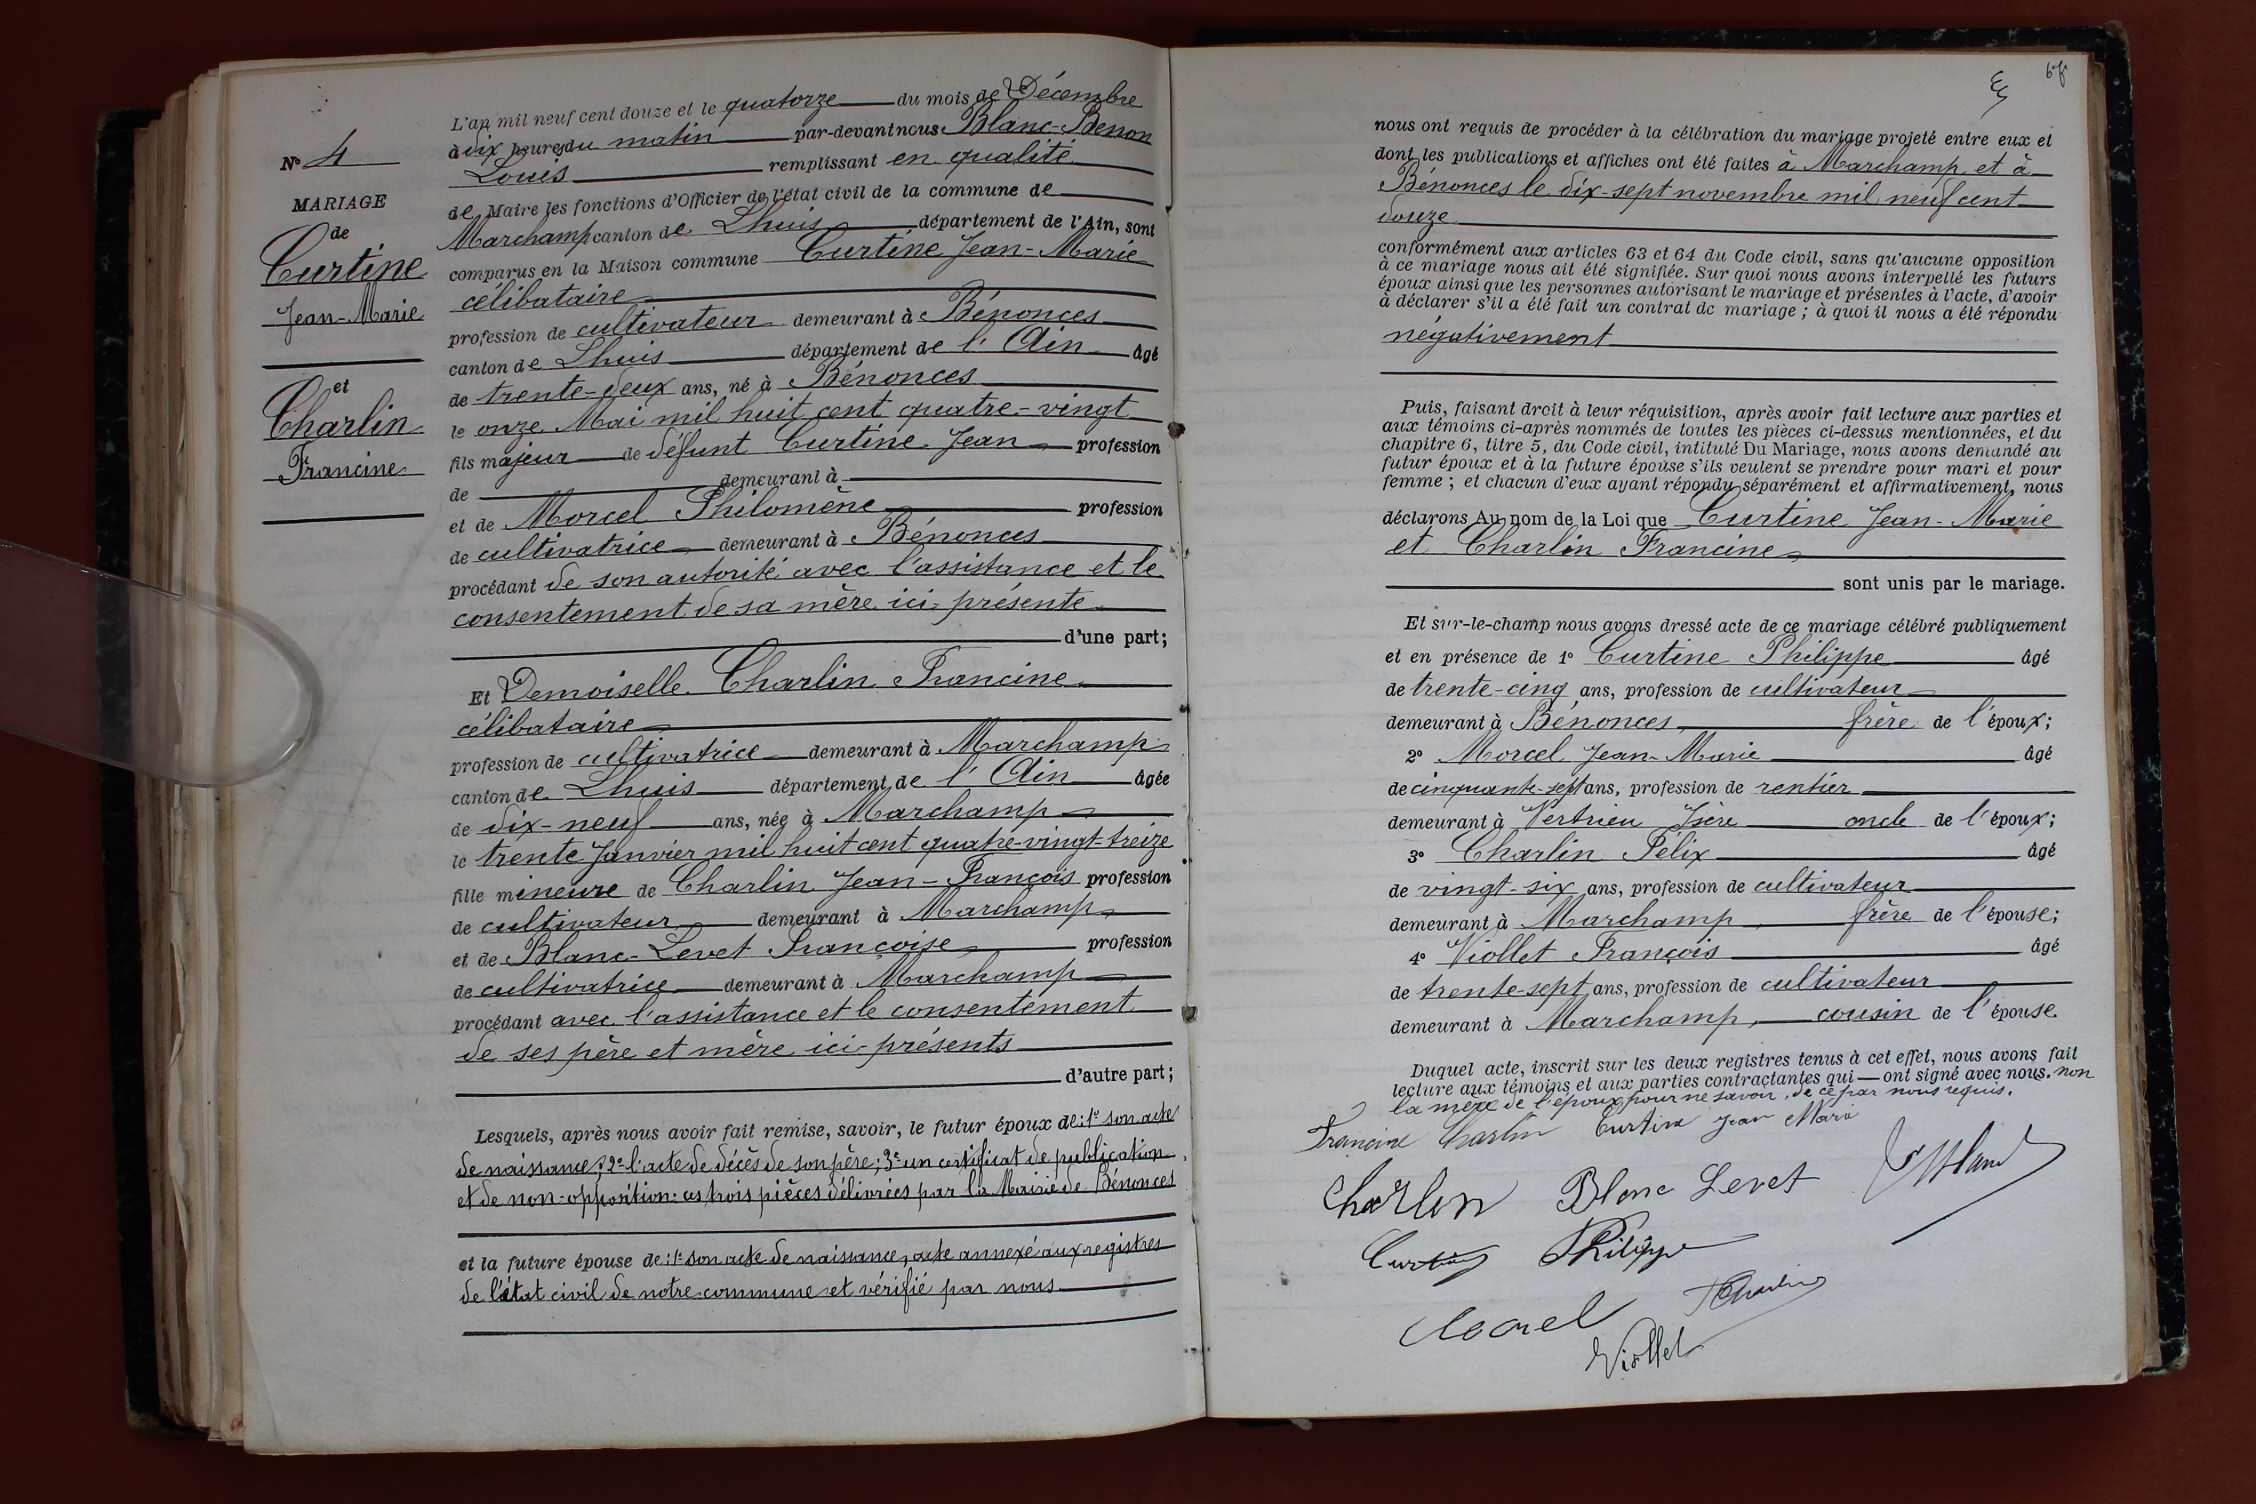 N° 4
MARIAGE
de
Curtine
Jean-Marie
et
Charlin
Francine
L'an mil neuf cent douze et le quatorze du mois de Décembre
à dix heures du matin par-devant nous Blanc-Benon
Louis remplissant en qualité
de Maire les fonctions d'Officier de l'état civil de la commune de
Marchamp canton de Lhuis département de l'Ain, sont
comparus en la Maison commune Curtine Jean-Marie
célibataire
profession de cultivateur demeurant à Bénonces
canton de Lhuis département de l'Ain âgé
de trente-deux ans, né à Bénonces
le onze Mai mil huit cent quatre-vingt
fils majeur de défunt Curtine Jean profession
de demeurant à
et de Morcel Philomène profession
de cultivatrice demeurant à Bénonces
procédant de son autorité avec l'assistance et le
consentement de sa mère ici présente
d'une part;
Et Demoiselle Charlin Francine
célibataire
profession de cultivatrice demeurant à Marchamp
canton de Lhuis département de l'Ain âgée
de dix-neuf ans, née à Marchamp
le trente Janvier mil huit cent quatre-vingt-treize
fille mineure de Charlin Jean-François profession
de cultivateur demeurant à Marchamp
et de Blanc-Levet Françoise profession
de cultivatrice demeurant à Marchamp
procédant avec l'assistance et le consentement
de ses père et mère ici-présents
d'autre part;
Lesquels, après nous avoir fait remise, savoir, le futur époux de: 1° son acte
de naissance; 2° l'acte de décès de son père; 3° un certificat de publication
et de non-opposition: ces trois pièces délivrées par la Mairie de Bénonces
et la future épouse de: 1° son acte de naissance, acte annexé aux registres
de l'état civil de notre commune et vérifié par nous
nous ont requis de procéder à la célébration du mariage projeté entre eux et
dont les publications et affiches ont été faites à Marchamp et à
Bénonces le dix-sept novembre mil neuf cent
douze
conformément aux articles 63 et 64 du Code civil, sans qu'aucune opposition
à ce mariage nous ait été signifiée. Sur quoi nous avons interpellé les futurs
époux ainsi que les personnes autorisant le mariage et présentes à l'acte, d'avoir
à déclarer s'il a été fait un contrat de mariage; à quoi il nous a été répondu
négativement
Puis, faisant droit à leur réquisition, après avoir fait lecture aux parties et
aux témoins ci-après nommés de toutes les pièces ci-dessus mentionnées, et du
chapitre 6, titre 5, du Code civil, intitulé Du Mariage, nous avons demandé au
futur époux et à la future épouse s'ils veulent se prendre pour mari et pour
femme; et chacun d'eux ayant répondu séparément et affirmativement, nous
déclarons Au nom de la Loi que Curtine Jean-Marie
et Charlin Francine
sont unis par le mariage.
Et sur-le-champ nous avons dressé acte de ce mariage célébré publiquement
et en présence de 1° Curtine Philippe âgé
de trente-cinq ans, profession de cultivateur
demeurant à Bénonces, frère de l'époux;
2° Morcel Jean-Marie âgé
de cinquante-sept ans, profession de rentier
demeurant à Vertrieu Isère oncle de l'époux;
3° Charlin Félix âgé
de vingt-six ans, profession de cultivateur
demeurant à Marchamp, frère de l'épouse;
4° Viollet François âgé
de trente-sept ans, profession de cultivateur
demeurant à Marchamp, cousin de l'épouse.
Duquel acte, inscrit sur les deux registres tenus à cet effet, nous avons fait
lecture aux témoins et aux parties contractantes qui ont signé avec nous. non
la mère de l'époux pour ne savoir, de ce par nous requis.
Francine Charlin Curtine Jean Marie
Charlin Blanc Levet
Curtine Philippe
Morcel F Charlin
Viollet